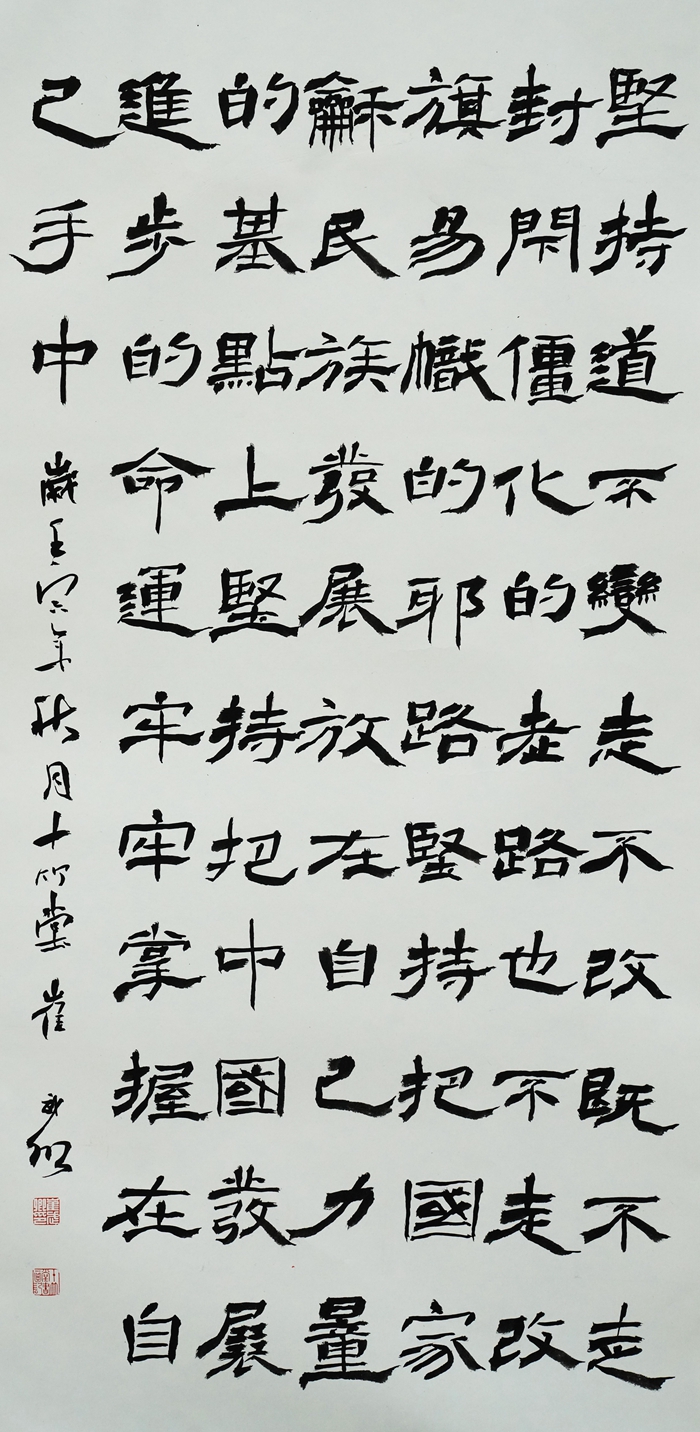 堅持道不變志不改既不走
封閇僵化的老路也不走改
旗易幟的耶路堅持把國家
龢民族發展放在自己力量
的基點上堅持把中國發展
進步的命運牢牢掌握在自
己手中
歲壬寅年秋月十竹堂崔